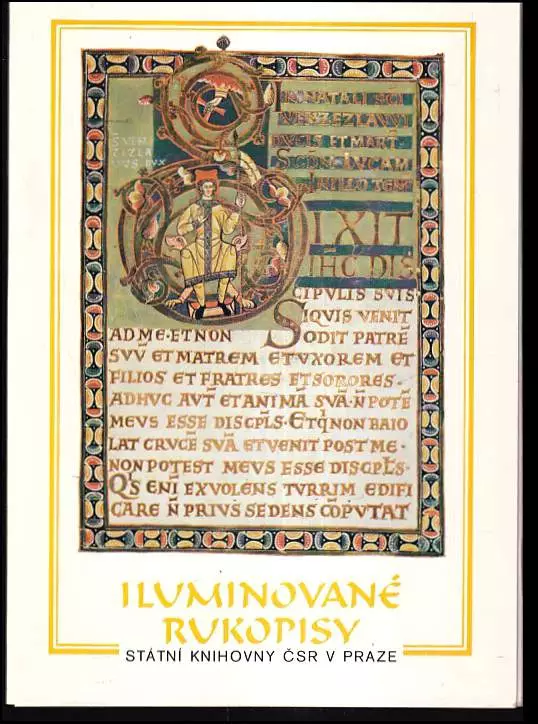 IN NATALI SC̄I
VVENZEZLAVVI
DVCIS ET MART̄
SCDM LVCAM
IN ILLO TEMP̄
DIXIT
IH̄C DIS
CIPVLIS SVIS
SIQVIS VENIT
AD ME·ET NON ODIT PATRĒ
SVV̄ ET MATREM ET VXOREM ET
FILIOS ET FRATRES ET SORORES·
ADHVC AVT̄ ET ANIMĀ SVĀ·N̄ POTĒ
MEVS ESSE DISCPL̄S·ET QI NON BAIO
LAT CRVCĒ SVĀ ET VENIT POST ME·
NON POTEST MEVS ESSE DISCPL̄S·
QS̄ ENĪ EX VOLENS TVRRIM EDIFI
CARE N̄ PRIVS SEDENS CŌPVTAT
ILUMINOVANÉ
RUKOPISY
STÁTNÍ KNIHOVNY ČSR V PRAZE